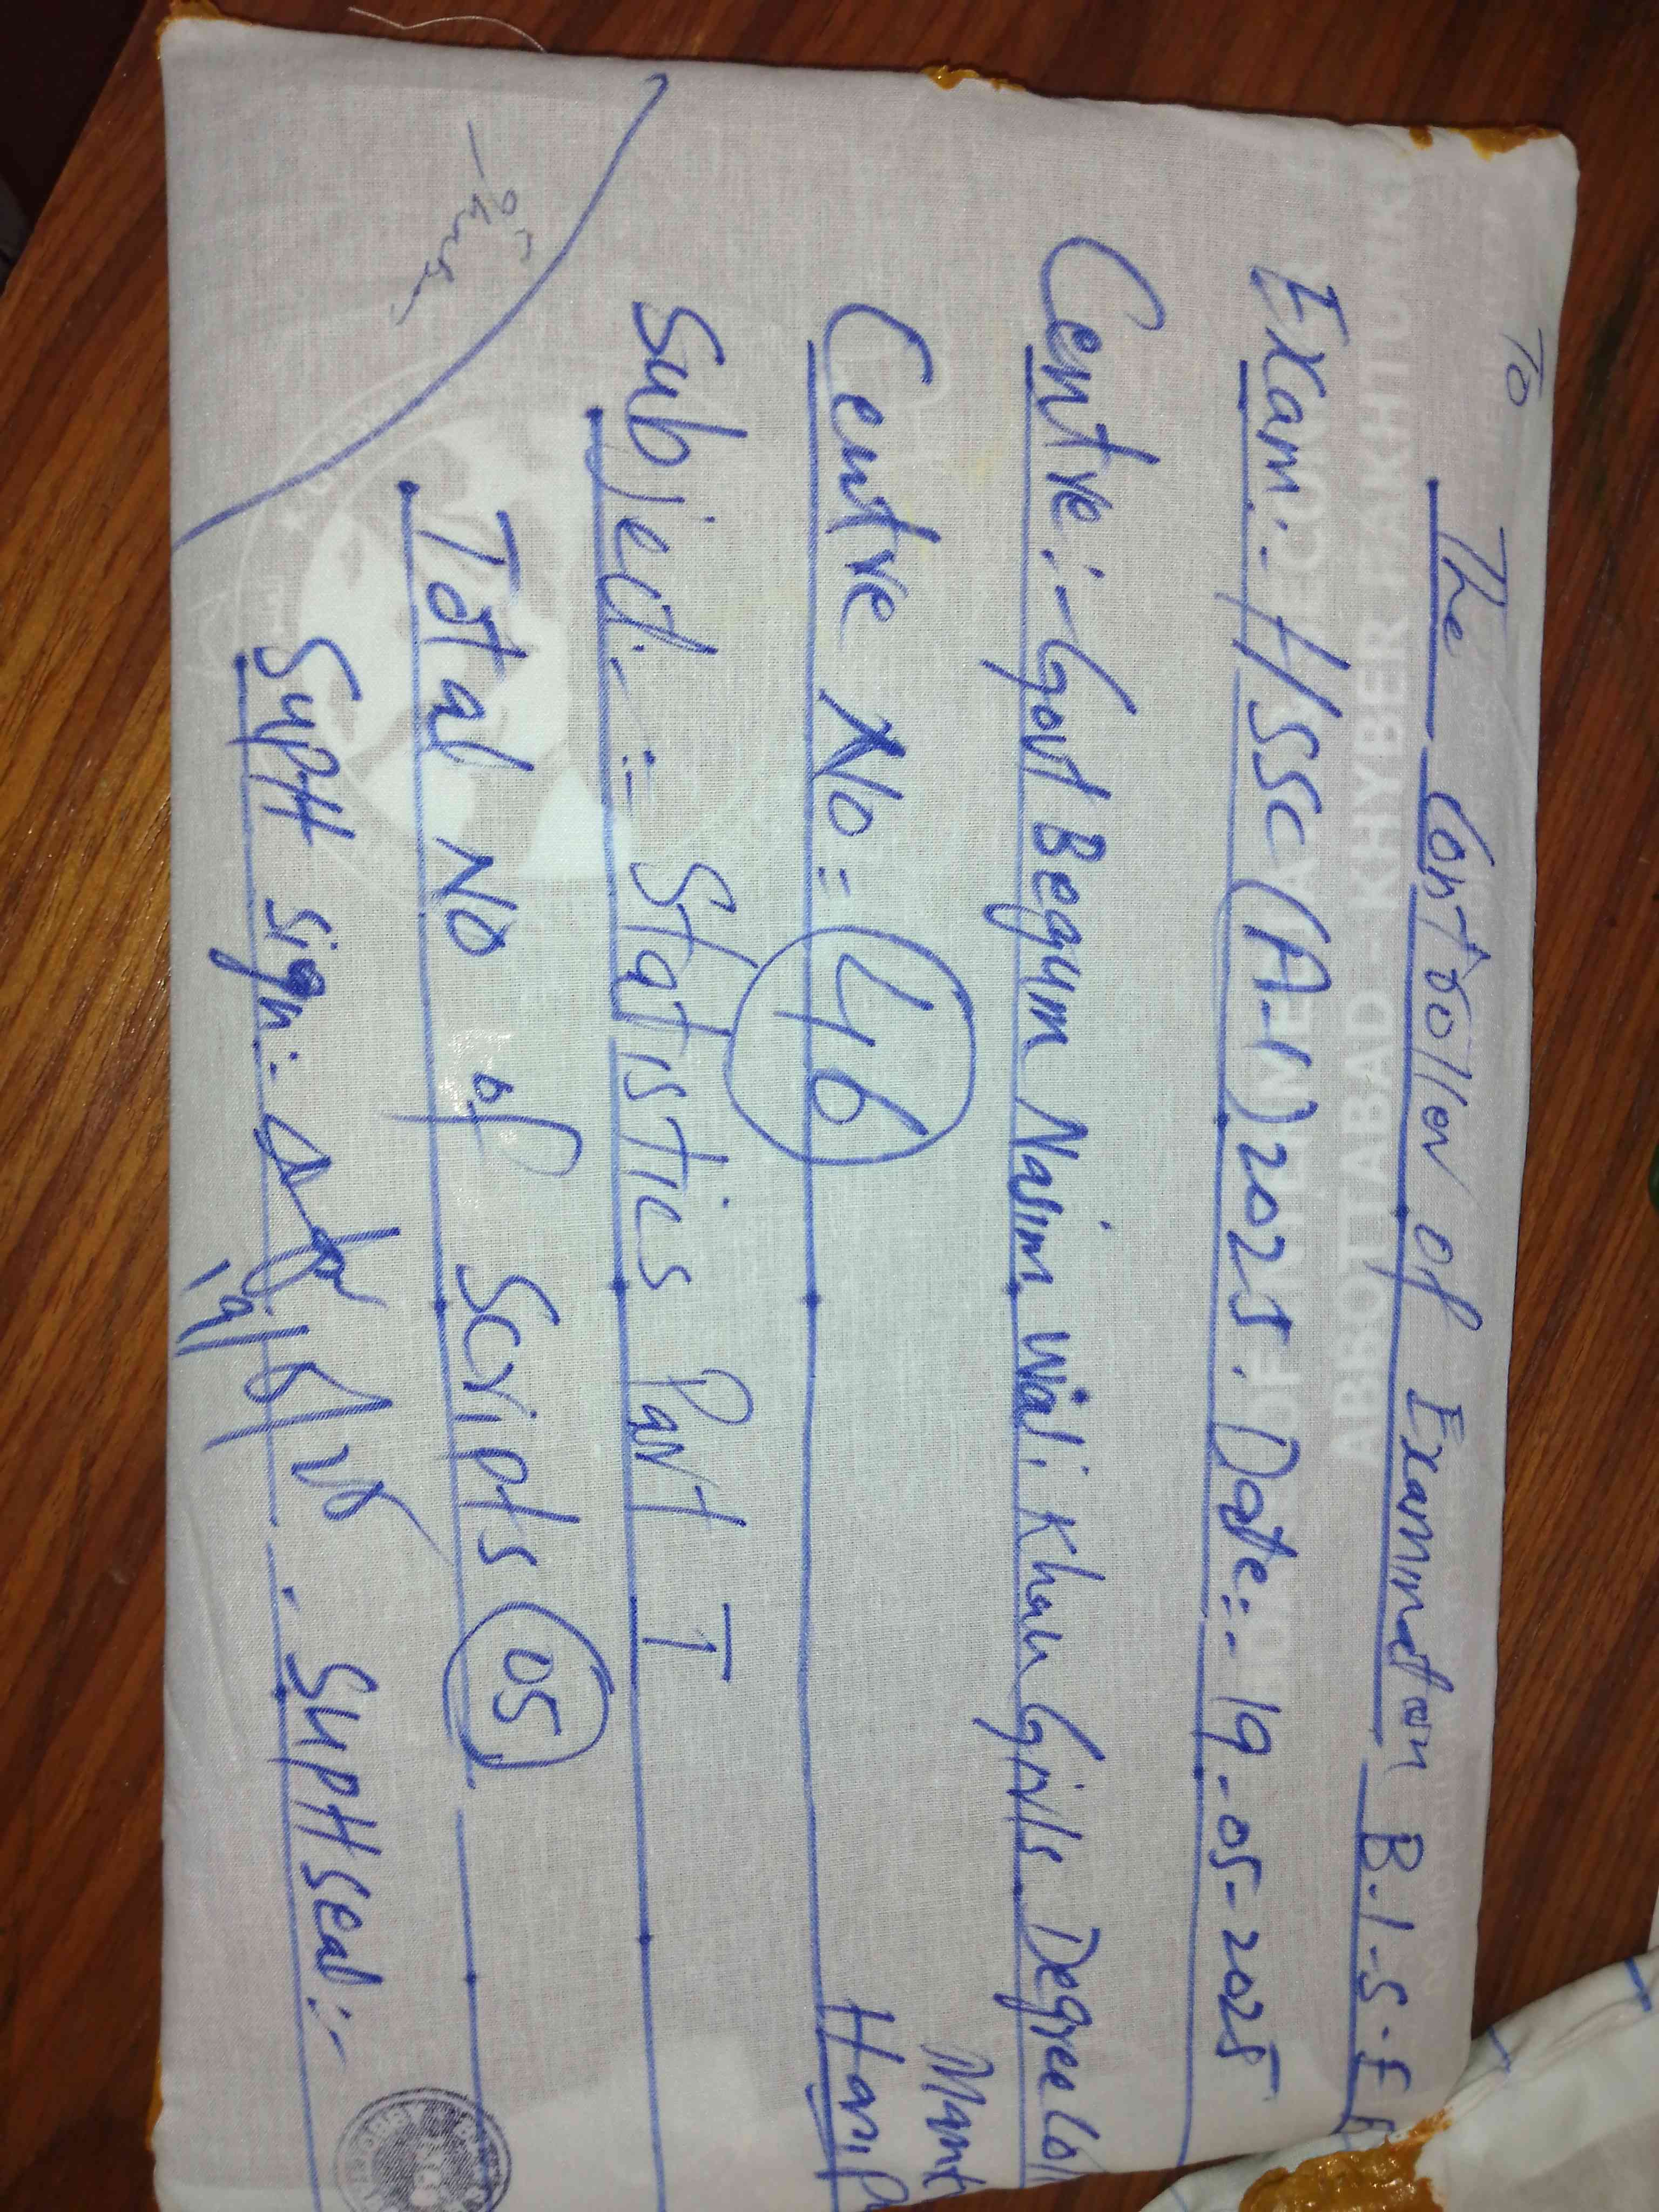 To
The Controller of Examination B.I.S.E
Exam:- HSSC (A-I) 2025. Date:- 19-05-2025
Centre:- Govt Begum Nasim Wali Khan Girls Degree Col
Centre No = 46
Subject:- = Statistics Part I
Total No of Scripts 05
Supt sign:
19/5/25
Supt seal:-
ABBOTTABAD - KHYBER PAKHTUNK